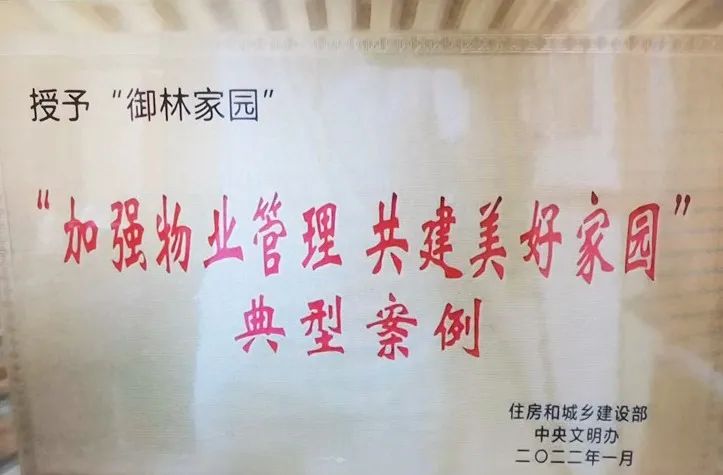 授予“御林家园”
“加强物业管理 共建美好家园”
典型案例
住房和城乡建设部
中央文明办
二〇二二年一月